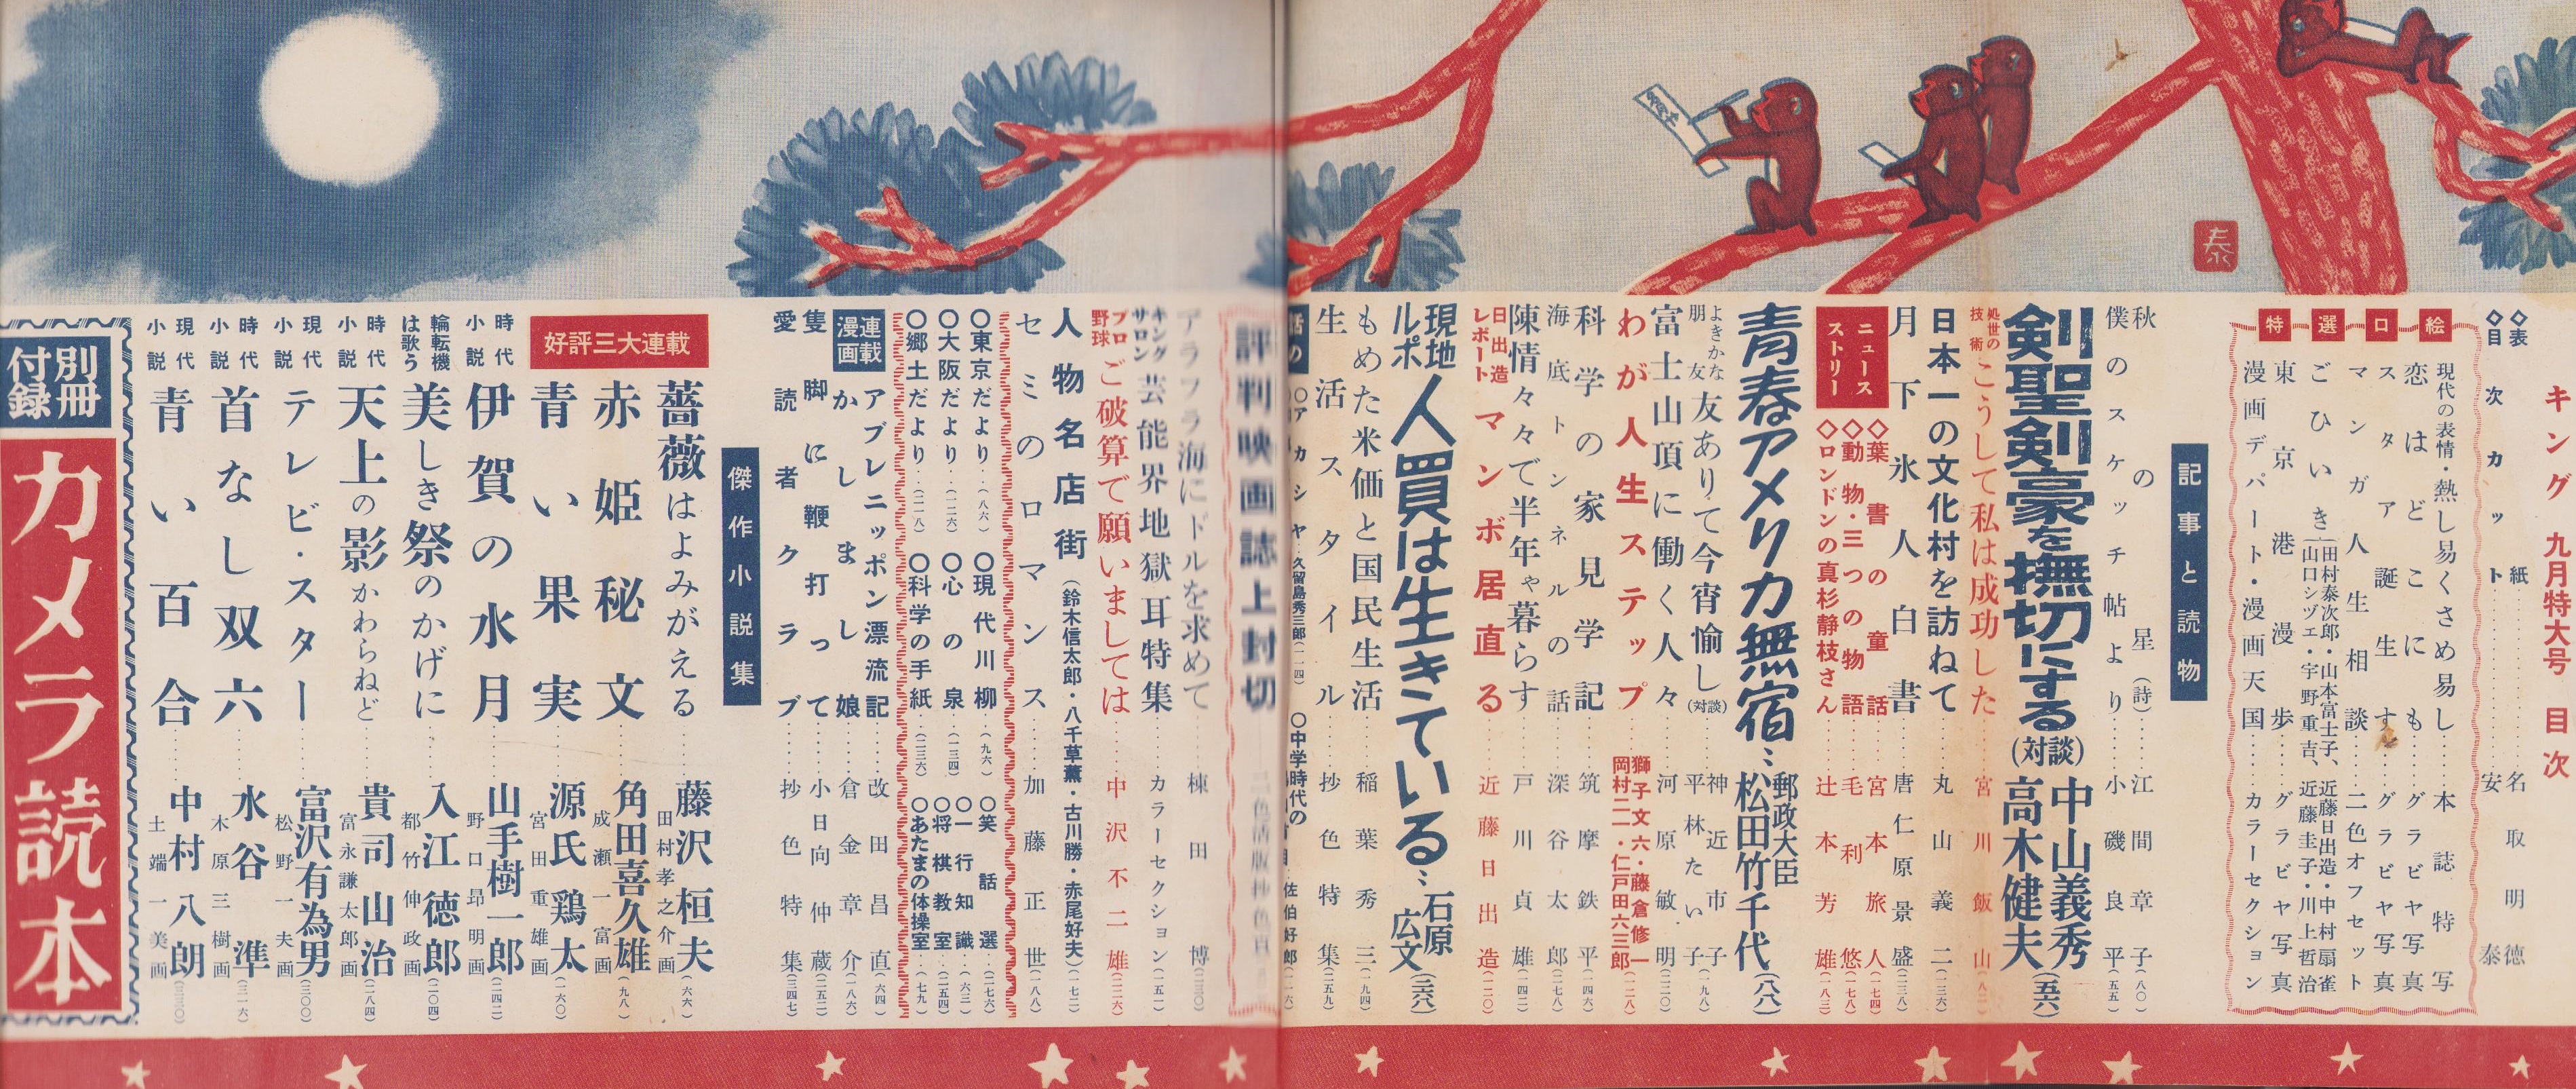 キング 九月特大号 目次
◇表紙……名取明徳
◇目次カット……安泰
特選口絵
現代の表情・熱し易くさめ易し……本誌特写
恋はどこにも……グラビヤ写真
スタア誕生す……グラビヤ写真
マンガ人生相談……二色オフセット
ごひいき(田村泰次郎・山本富士子、近藤日出造・中村扇雀
山口シヅエ・宇野重吉、近藤圭子・川上哲治
東京港漫歩……グラビヤ写真
漫画デパート・漫画天国……カラーセクション
記事と読物
秋の星(詩)……江間章子(八〇)
僕のスケッチ帖より……小磯良平(五五)
剣聖剣豪を撫切にする(対談) 中山義秀 高木健夫(五六)
処世の技術 こうして私は成功した……宮川飯山(八二)
日本一の文化村を訪ねて……丸山義二(二三六)
月下氷人白書……唐仁原景盛(二三八)
ニュースストリー
◇葉書の童話……宮本旅人(一七四)
◇動物・三つの物語……毛利悠(一七八)
◇ロンドンの真杉静枝さん……辻本芳雄(一八三)
青春アメリカ無宿… 郵政大臣 松田竹千代(八八)
よきかな朋友 友ありて今宵愉し(対談) 神近市子 平林たい子(一九八)
富士山頂に働く人々……河原敏明(二二〇)
わが人生ステップ 獅子文六・藤倉修一 岡村二一・仁戸田六三郎(一二八)
科学の家見学記……筑摩鉄平(一四六)
海底トンネルの話……深谷太郎(二七八)
陳情々々で半年ゃ暮らす……戸川貞雄(一四二)
日出造レポート マンボ居直る……近藤日出造(一二〇)
現地ルポ 人買は生きている… 石原広文(三六八)
もめた米価と国民生活……稲葉秀三(一九四)
生活スタイル……抄色特集(二五九)
〇アカシヤ…久留島秀三郎(一一四)
〇中学時代の
佐伯好郎
評判映画誌上封切
アラフラ海にドルを求めて……棟田博(二三〇)
キングサロン 芸能界地獄耳特集……カラーセクション(一五一)
プロ野球 ご破算で願いましては……中沢不二雄(二二六)
人物名店街(鈴木信太郎・八千草薫・古川勝・赤尾好夫)(一七二)
セミのロマンス……加藤正世(一八八)
〇東京だより…(八六)
〇現代川柳…(九六)
〇笑話選…(二七六)
〇大阪だより…(一二六)
〇心の泉…(一三四)
〇一行知識…(六三)
〇将棋教室…(二五四)
〇郷土だより…(二一八)
〇科学の手紙…(二三六)
〇あたまの体操室…(七九)
連載漫画
アブレニッポン漂流記……改田昌直(六四)
かしまし娘……倉金章介(一八六)
隻脚に鞭打って……小日向仲蔵(二五二)
愛読者クラブ……抄色特集(三四七)
傑作小説集
好評三大連載
薔薇はよみがえる……藤沢桓夫 田村孝之介画(六六)
赤姫秘文……角田喜久雄 成瀬一富画(九八)
青い果実……源氏鶏太 宮田重雄画(一六〇)
時代小説 伊賀の水月……山手樹一郎 野口昂明画(二四二)
輪転機は歌う 美しき祭のかげに……入江徳郎 都竹伸政画(二〇四)
時代小説 天上の影かわらねど……貴司山治 富永謙太郎画(二八四)
現代小説 テレビ・スター……富沢有為男 松野一夫画(三〇〇)
時代小説 首なし双六……水谷準 木原三樹画(三一六)
現代小説 青い百合……中村八朗 土端一美画(三三〇)
別冊付録
カメラ読本
泰